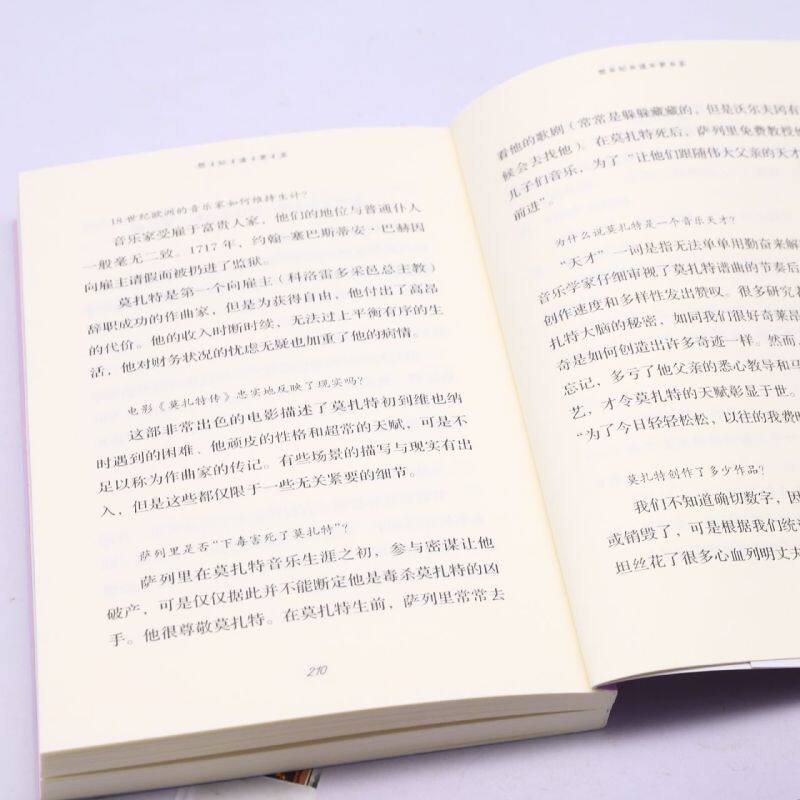 想♦知♦道♦更♦多
18世纪欧洲的音乐家如何维持生计？
音乐家受雇于富贵人家，他们的地位与普通仆人
一般毫无二致。1717年，约翰·塞巴斯蒂安·巴赫因
向雇主请假而被扔进了监狱。
莫扎特是第一个向雇主（科洛雷多采邑总主教）
辞职成功的作曲家，但是为获得自由，他付出了高昂
的代价。他的收入时断时续，无法过上平衡有序的生
活，他对财务状况的忧虑无疑也加重了他的病情。
电影《莫扎特传》忠实地反映了现实吗？
这部非常出色的电影描述了莫扎特初到维也纳
时遇到的困难、他顽皮的性格和超常的天赋，可是不
足以称为作曲家的传记。有些场景的描写与现实有出
入，但是这些都仅限于一些无关紧要的细节。
萨列里是否“下毒害死了莫扎特”？
萨列里在莫扎特音乐生涯之初，参与密谋让他
破产，可是仅仅据此并不能断定他是毒杀莫扎特的凶
手。他很尊敬莫扎特。在莫扎特生前，萨列里常常去
210
想♦知♦道♦更♦多
看他的歌剧（常常是躲躲藏藏的，但是沃尔夫冈有
候会去找他）。在莫扎特死后，萨列里免费教授他
儿子们音乐，为了“让他们跟随伟大父亲的天才
前进”。
为什么说莫扎特是一个音乐天才？
“天才”一词是指无法单单用勤奋来解
音乐学家仔细审视了莫扎特谱曲的节奏后
创作速度和多样性发出赞叹。很多研究者
扎特大脑的秘密，如同我们很好奇莱昂
奇是如何创造出许多奇迹一样。然而，
忘记，多亏了他父亲的悉心教导和马
艺，才令莫扎特的天赋彰显于世。
“为了今日轻轻松松，以往的我费
莫扎特创作了多少作品？
我们不知道确切数字，因
或销毁了，可是根据我们统
坦丝花了很多心血列明丈夫